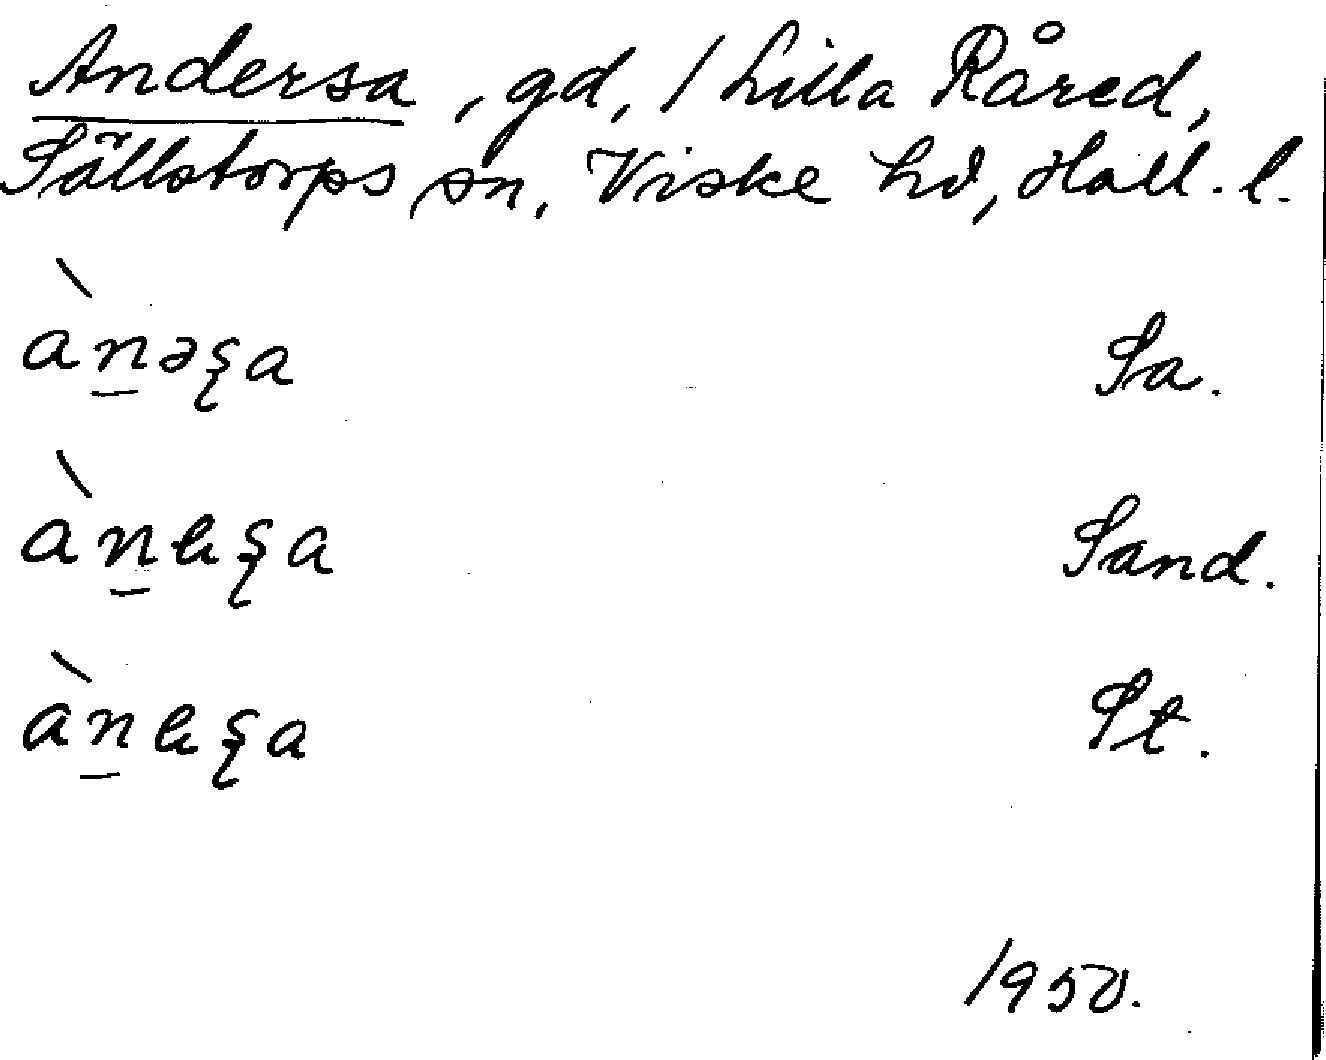 Andersa, gd, 1 Lilla Råred,
Sällstorps sn, Viske hd, Hall. l.
ànəʂa Sa.
Sand.
St.
1950.